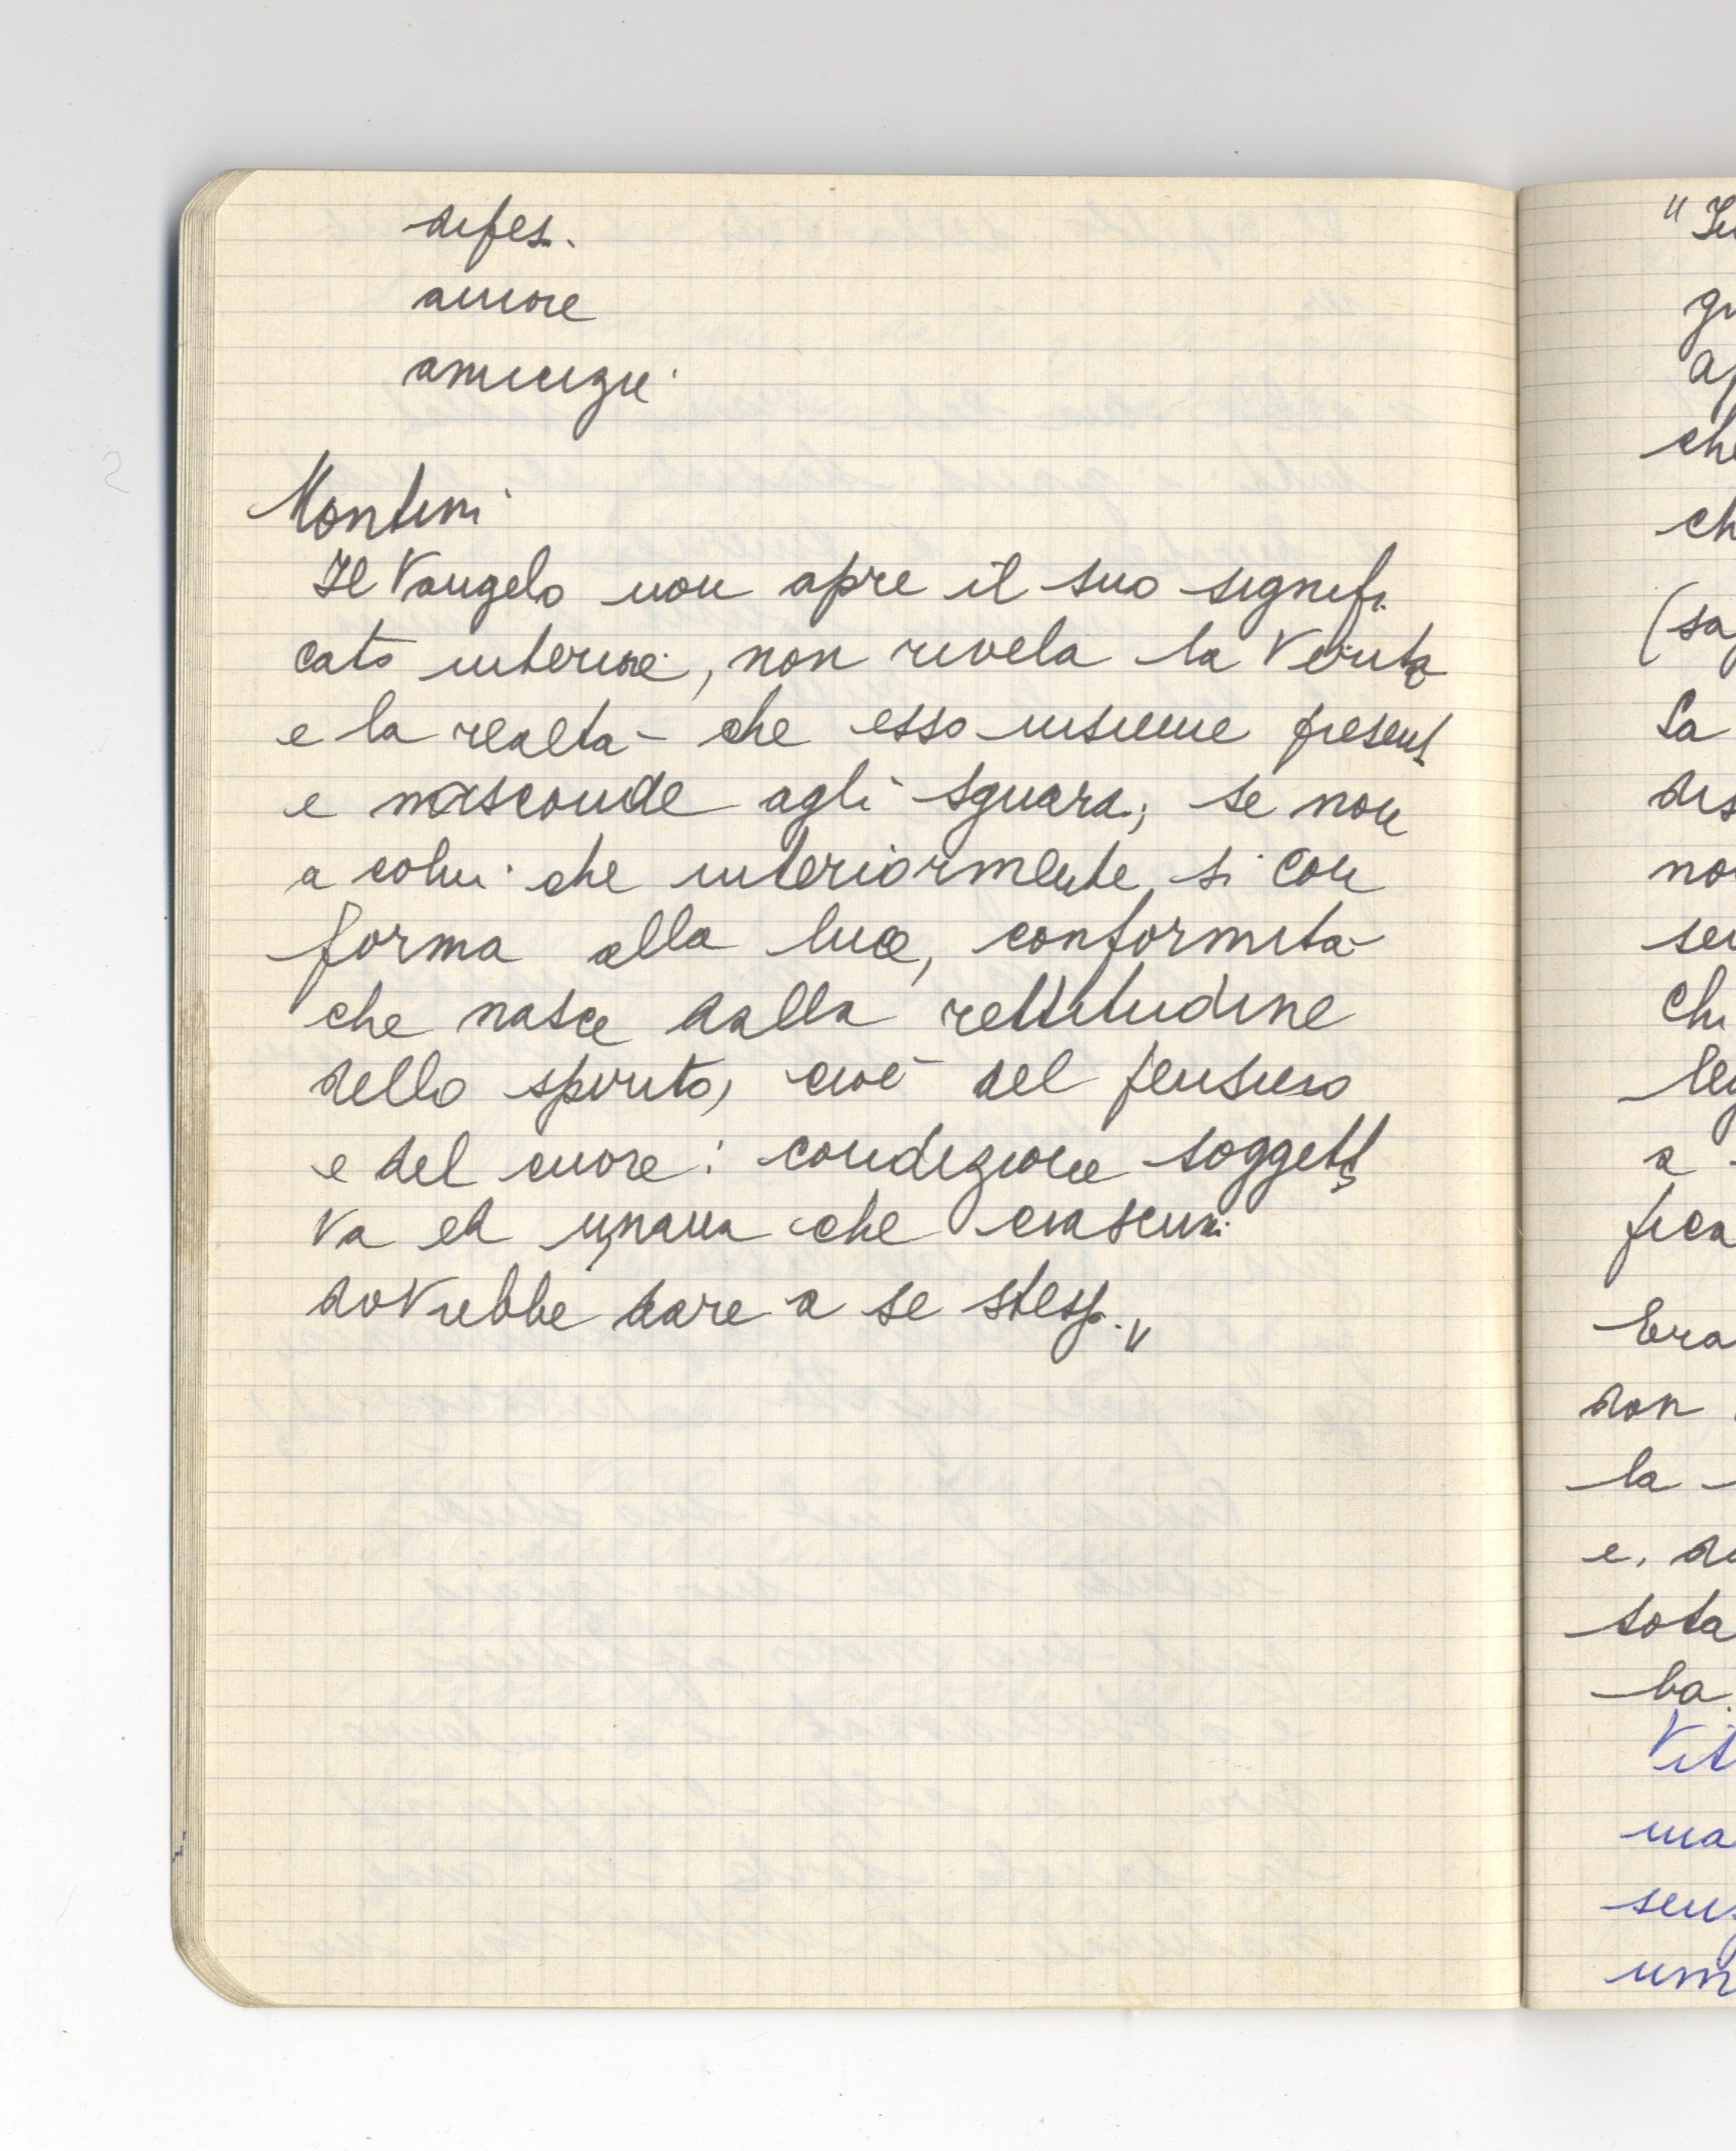 difes.
amore
amicizie
Montini
Il Vangelo non apre il suo signifi
cato interiore, non rivela la Verità
e la realtà che esso insieme present
e nasconde agli sguardi, se non
a colui che interiormente si con
forma alla luce, conformità
che nasce dalla rettitudine
dello spirito, cioè del pensiero
e del cuore: condizione soggetti
va ed umana che ciascuno
dovrebbe dare a se stesso."
"
gi
ap
che
ch
(sa
La
dis
no
sen
Chi
leg
a
fica
Era
don
la
e, di
tota
ba.
Vit
ma
sens
um